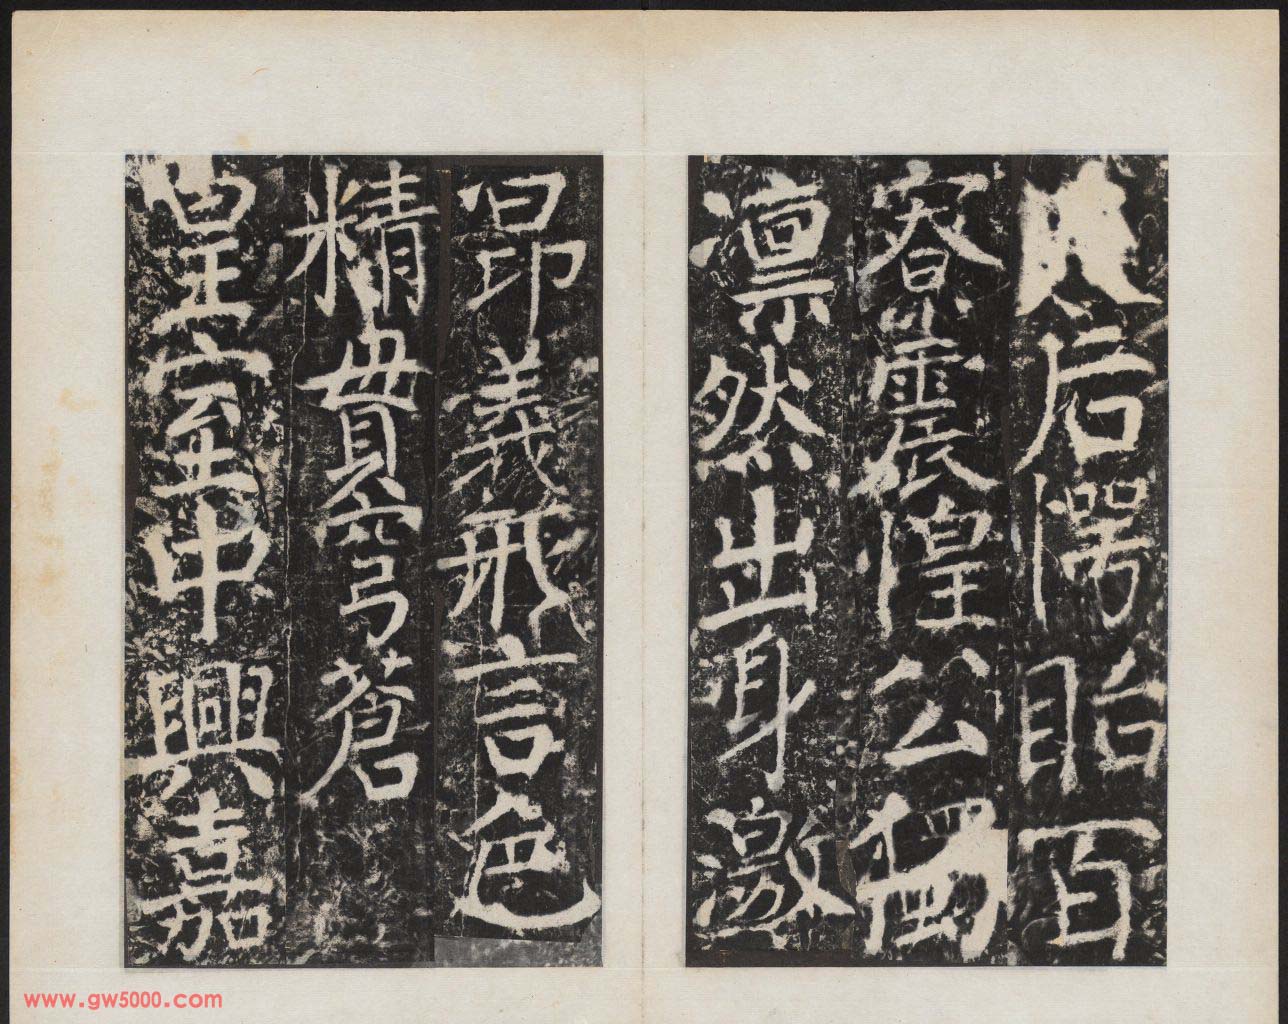 后愕眙百
寮震惶公獨
凜然出身激
昂義形言色
精貫穹蒼
皇室中興嘉
www.gw5000.com